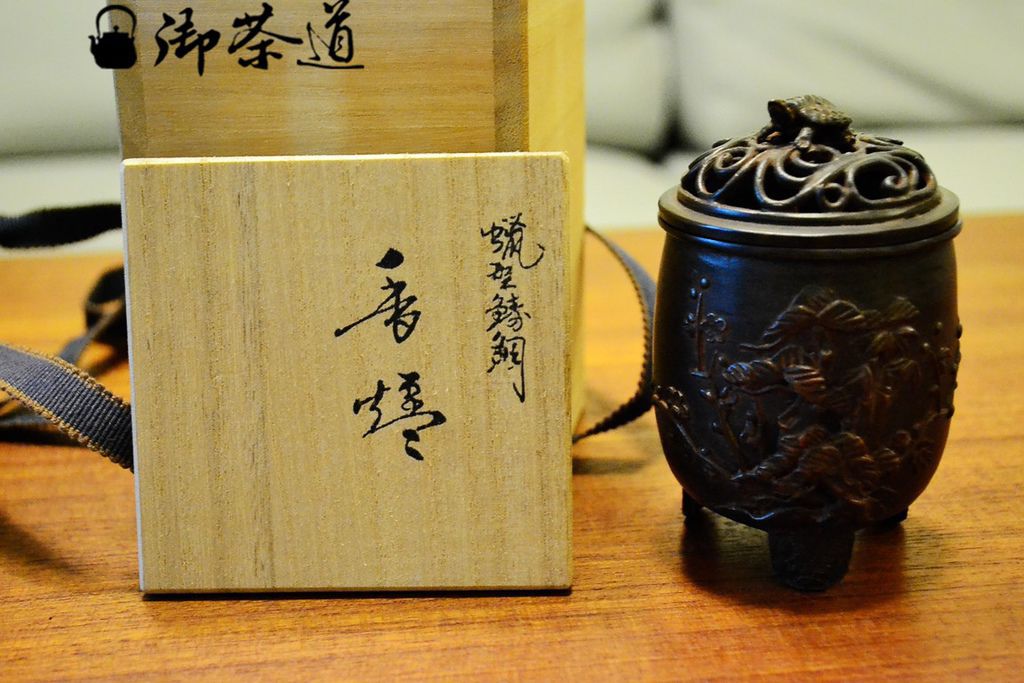 御茶道
蝋型鋳銅
香爐